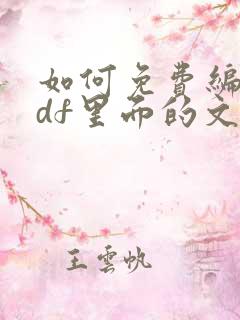 如何免费编
df里面的文
王云帆